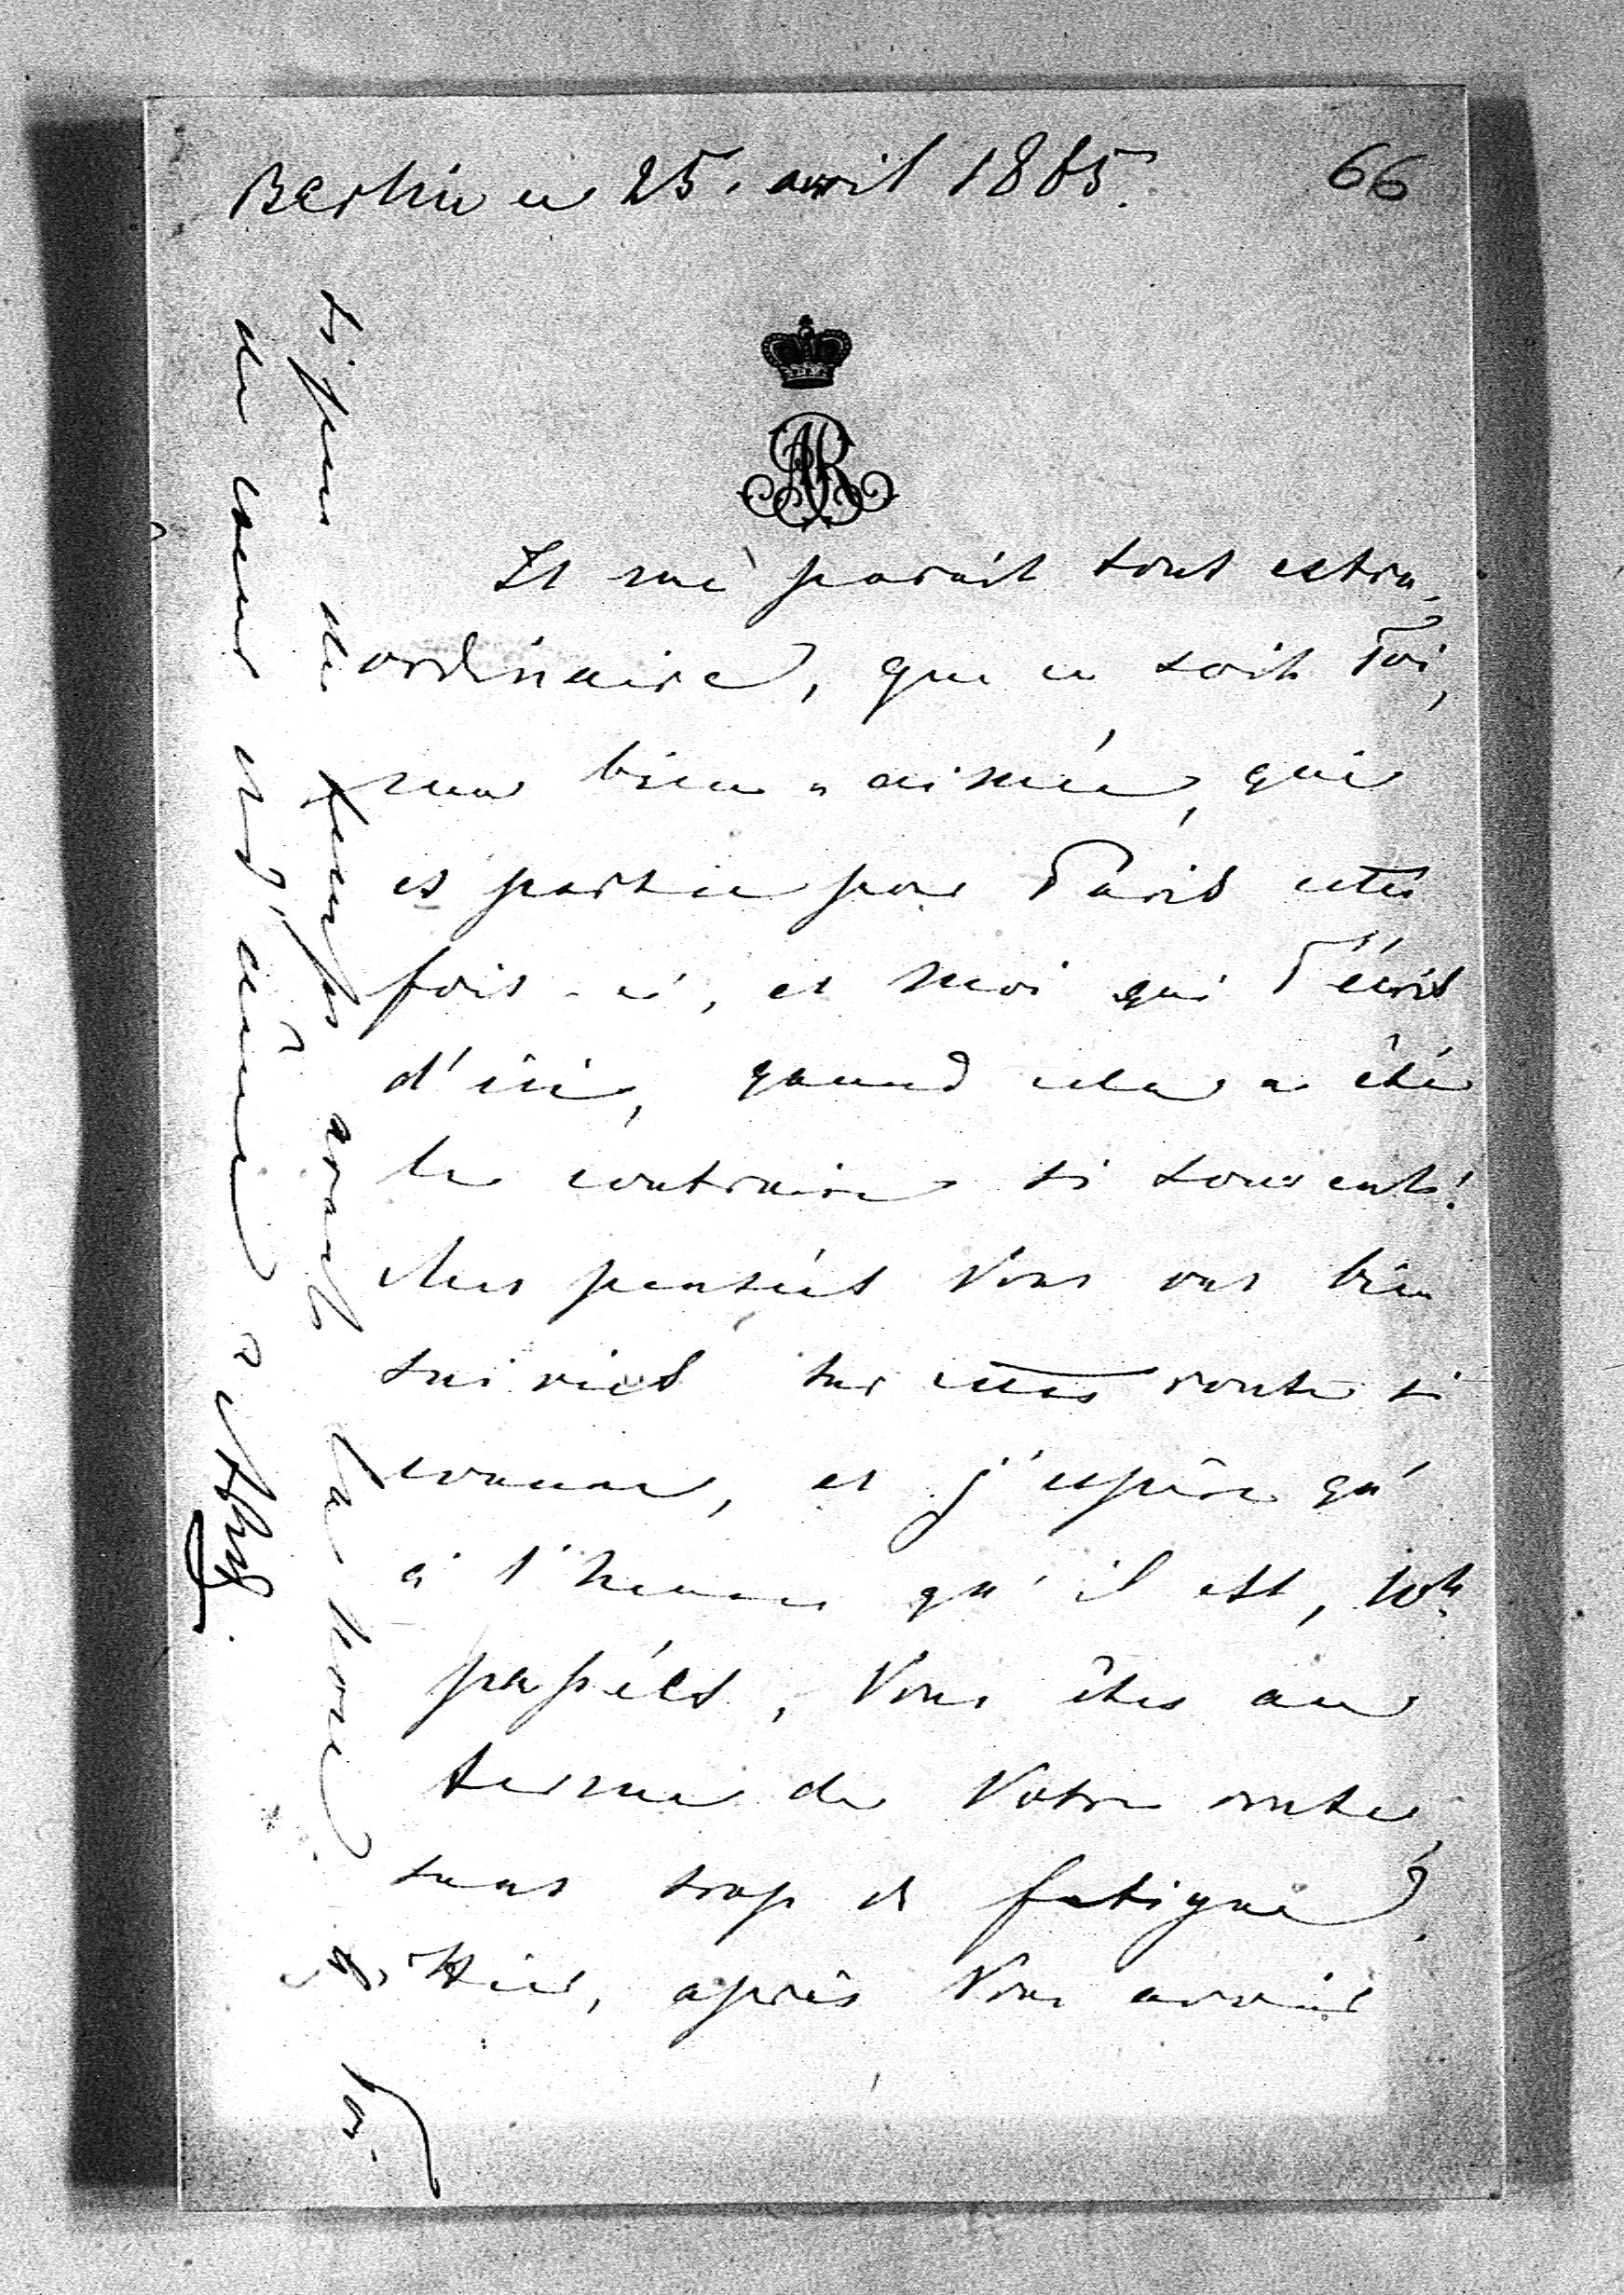 Berlin ce 25. avril 1865.
66
AR
Il me paraît tout extra-
ordinaire, que ce soit Toi,
ma bien-aimée, qui
es partie pour Paris cette
fois-ci, et moi qui T'écris
d'ici, quand cela a été
le contraire si souvent!
Mes pensées Vous ont bien
suivies sur cette route si
connue, et j'espère qu'
à l'heure qu'il est, 10h
passées, Vous êtes au
terme de Votre route,
sans trop de fatigue?
Hier, après Vous avoir
si peu de temps avant la
Toi
du cœur et, à